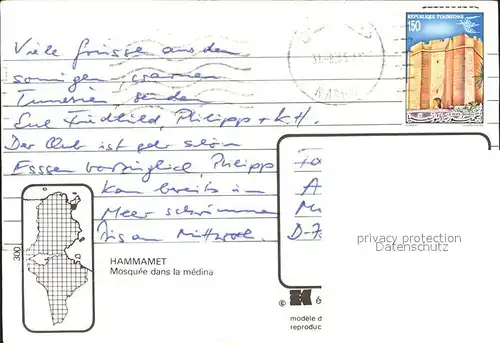 Viele Grüsse aus dem
sonnigen, warmen
Tunesien, senden
Eue Friedhild, Philipp + K.H.
Der Club ist sehr schön
Esssen vorzüglich, Philipp
kann bereits im
Meer schwimmen
Bis am Mittwoch.
REPUBLIQUE TUNISIENNE
150
D-7
300
HAMMAMET
Mosquée dans la médina
privacy protection
Datenschutz
© 6
modèle d
reproduc